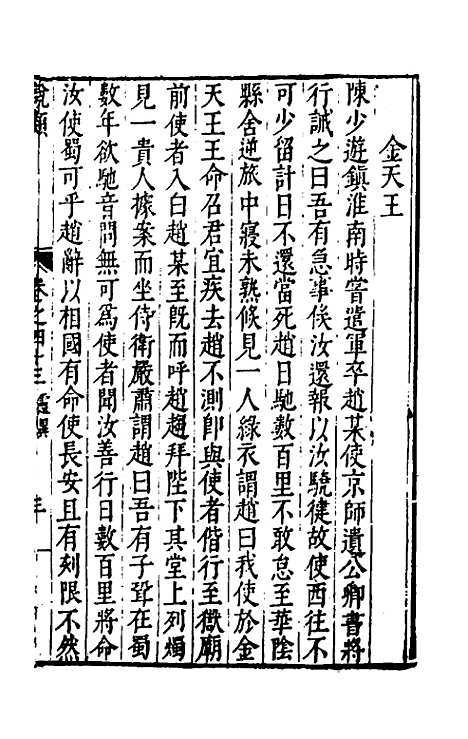 金天王
陳少遊鎮淮南時嘗遣軍卒趙某使京師遺公卿書將
行誡之曰吾有急事候汝還報以汝驍徤故使西往不
可少留計日不還當死趙日馳數百里不敢怠至華陰
縣舍逆旅中寢未熟候見一人綠衣謂趙曰我使於金
天王王命召君宜疾去趙不測即與使者偕行至嶽廟
前使者入白趙某至既而呼趙趨拜陛下其堂上列燭
見一貴人據案而坐侍衛嚴肅謂趙曰吾有子聟在蜀
數年欲馳音問無可爲使者聞汝善行日數百里將命
汝使蜀可乎趙辭以相國有命使長安且有刻限不然
說類
卷之四十三